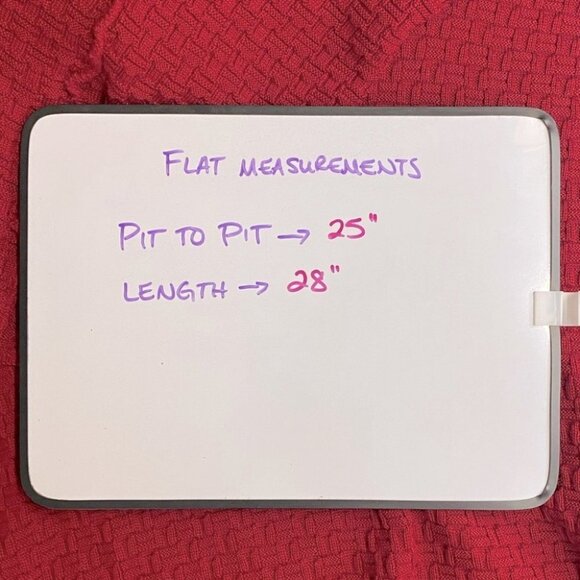 FLAT MEASUREMENTS
PIT TO PIT → 25"
LENGTH → 28"